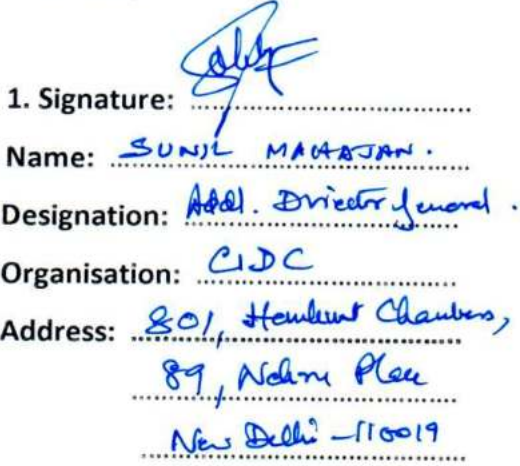 1. Signature:
Name: SUNIL MAHAJAN.
Designation: Addl. Director General.
Organisation: CIDC
Address: 801, Hemkunt Chambers,
89, Nehru Place
New Delhi - 110019